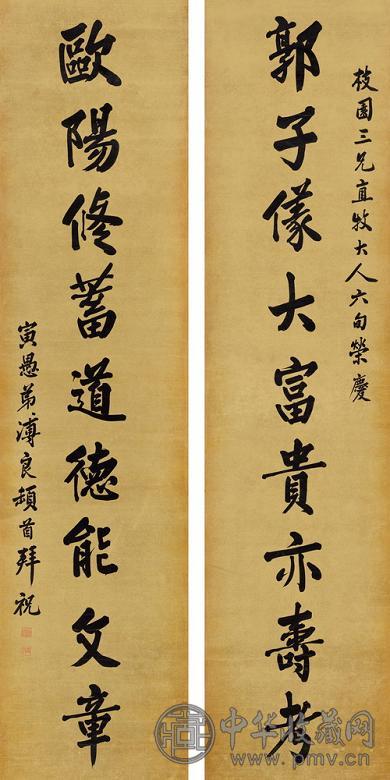 枝園三兄直牧大人六旬榮慶
郭子儀大富貴亦壽考
歐陽修蓄道德能文章
寅愚弟溥良頓首拜祝
中华收藏网
www.pmv.cn